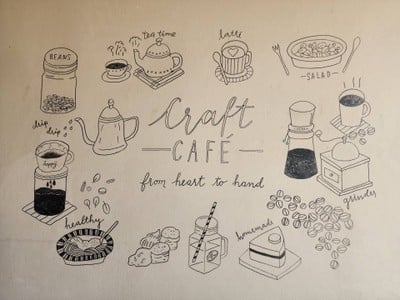 BEANS
tea time
latte
SALAD
drip
drip
happy
Craft
CAFÉ
from heart to hand
grinder
healthy
homemade